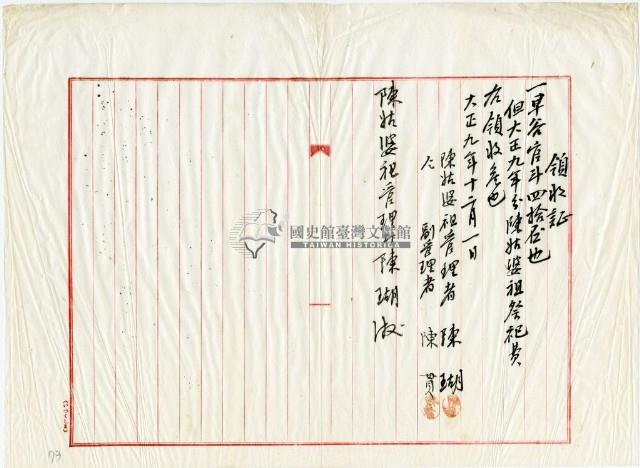 領收証
一早谷官斗四拾石也
但大正九年分陳姑婆祖祭祀費
右領收候也
大正九年十二月一日
陳姑婆祖管理者 陳瑚
仝 副管理者 陳貫
陳姑婆祀管理 陳瑚 
國史館臺灣文獻館
TAIWAN HISTORICA
73